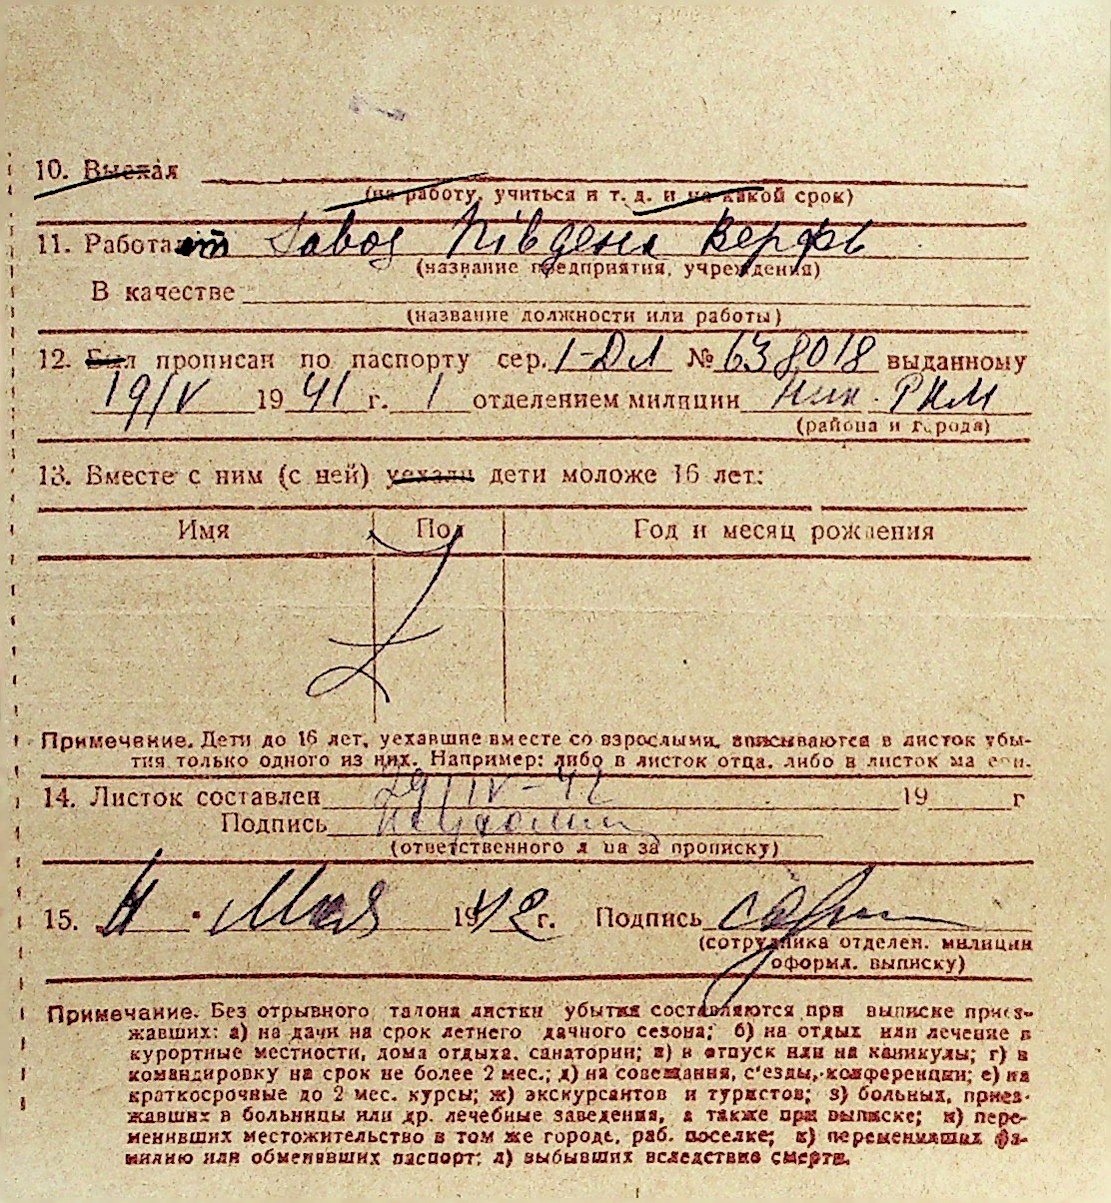 10. Выехал
(на работу, учиться и т. д. и на какой срок)
11. Работает Завод Південа Верфь
(название предприятия, учреждения)
В качестве
(название должности или работы)
12. Был прописан по паспорту сер. I-ДЛ № 638018 выданному
19/IV 1941 г. 1 отделением милиции Ник. РКМ
(района и города)
13. Вместе с ним (с ней) уехали дети моложе 16 лет:
Имя Пол Год и месяц рождения
Примечание. Дети до 16 лет, уехавшие вместе со взрослыми, вписываются в листок убы-
тия только одного из них. Например: либо в листок отца, либо в листок матери.
14. Листок составлен 29/IV-42 19 г
Подпись
(ответственного лица за прописку)
15. 4 Мая 1942 г. Подпись
(сотрудника отделен. милиции
оформл. выписку)
Примечание. Без отрывного талона листки убытия составляются при выписке приез-
жавших: а) на дачи на срок летнего дачного сезона; б) на отдых или лечение в
курортные местности, дома отдыха, санатории; в) в отпуск или на каникулы; г) в
командировку на срок не более 2 мес.; д) на совещания, с'езды, конференции; е) на
краткосрочные до 2 мес. курсы; ж) экскурсантов и туристов; з) больных, приез-
жавших в больницы или др. лечебные заведения, а также при выписке; и) пере-
менивших местожительство в том же городе, раб. поселке; к) переменивших фа-
милию или обменявших паспорт; л) выбывших вследствие смерти.